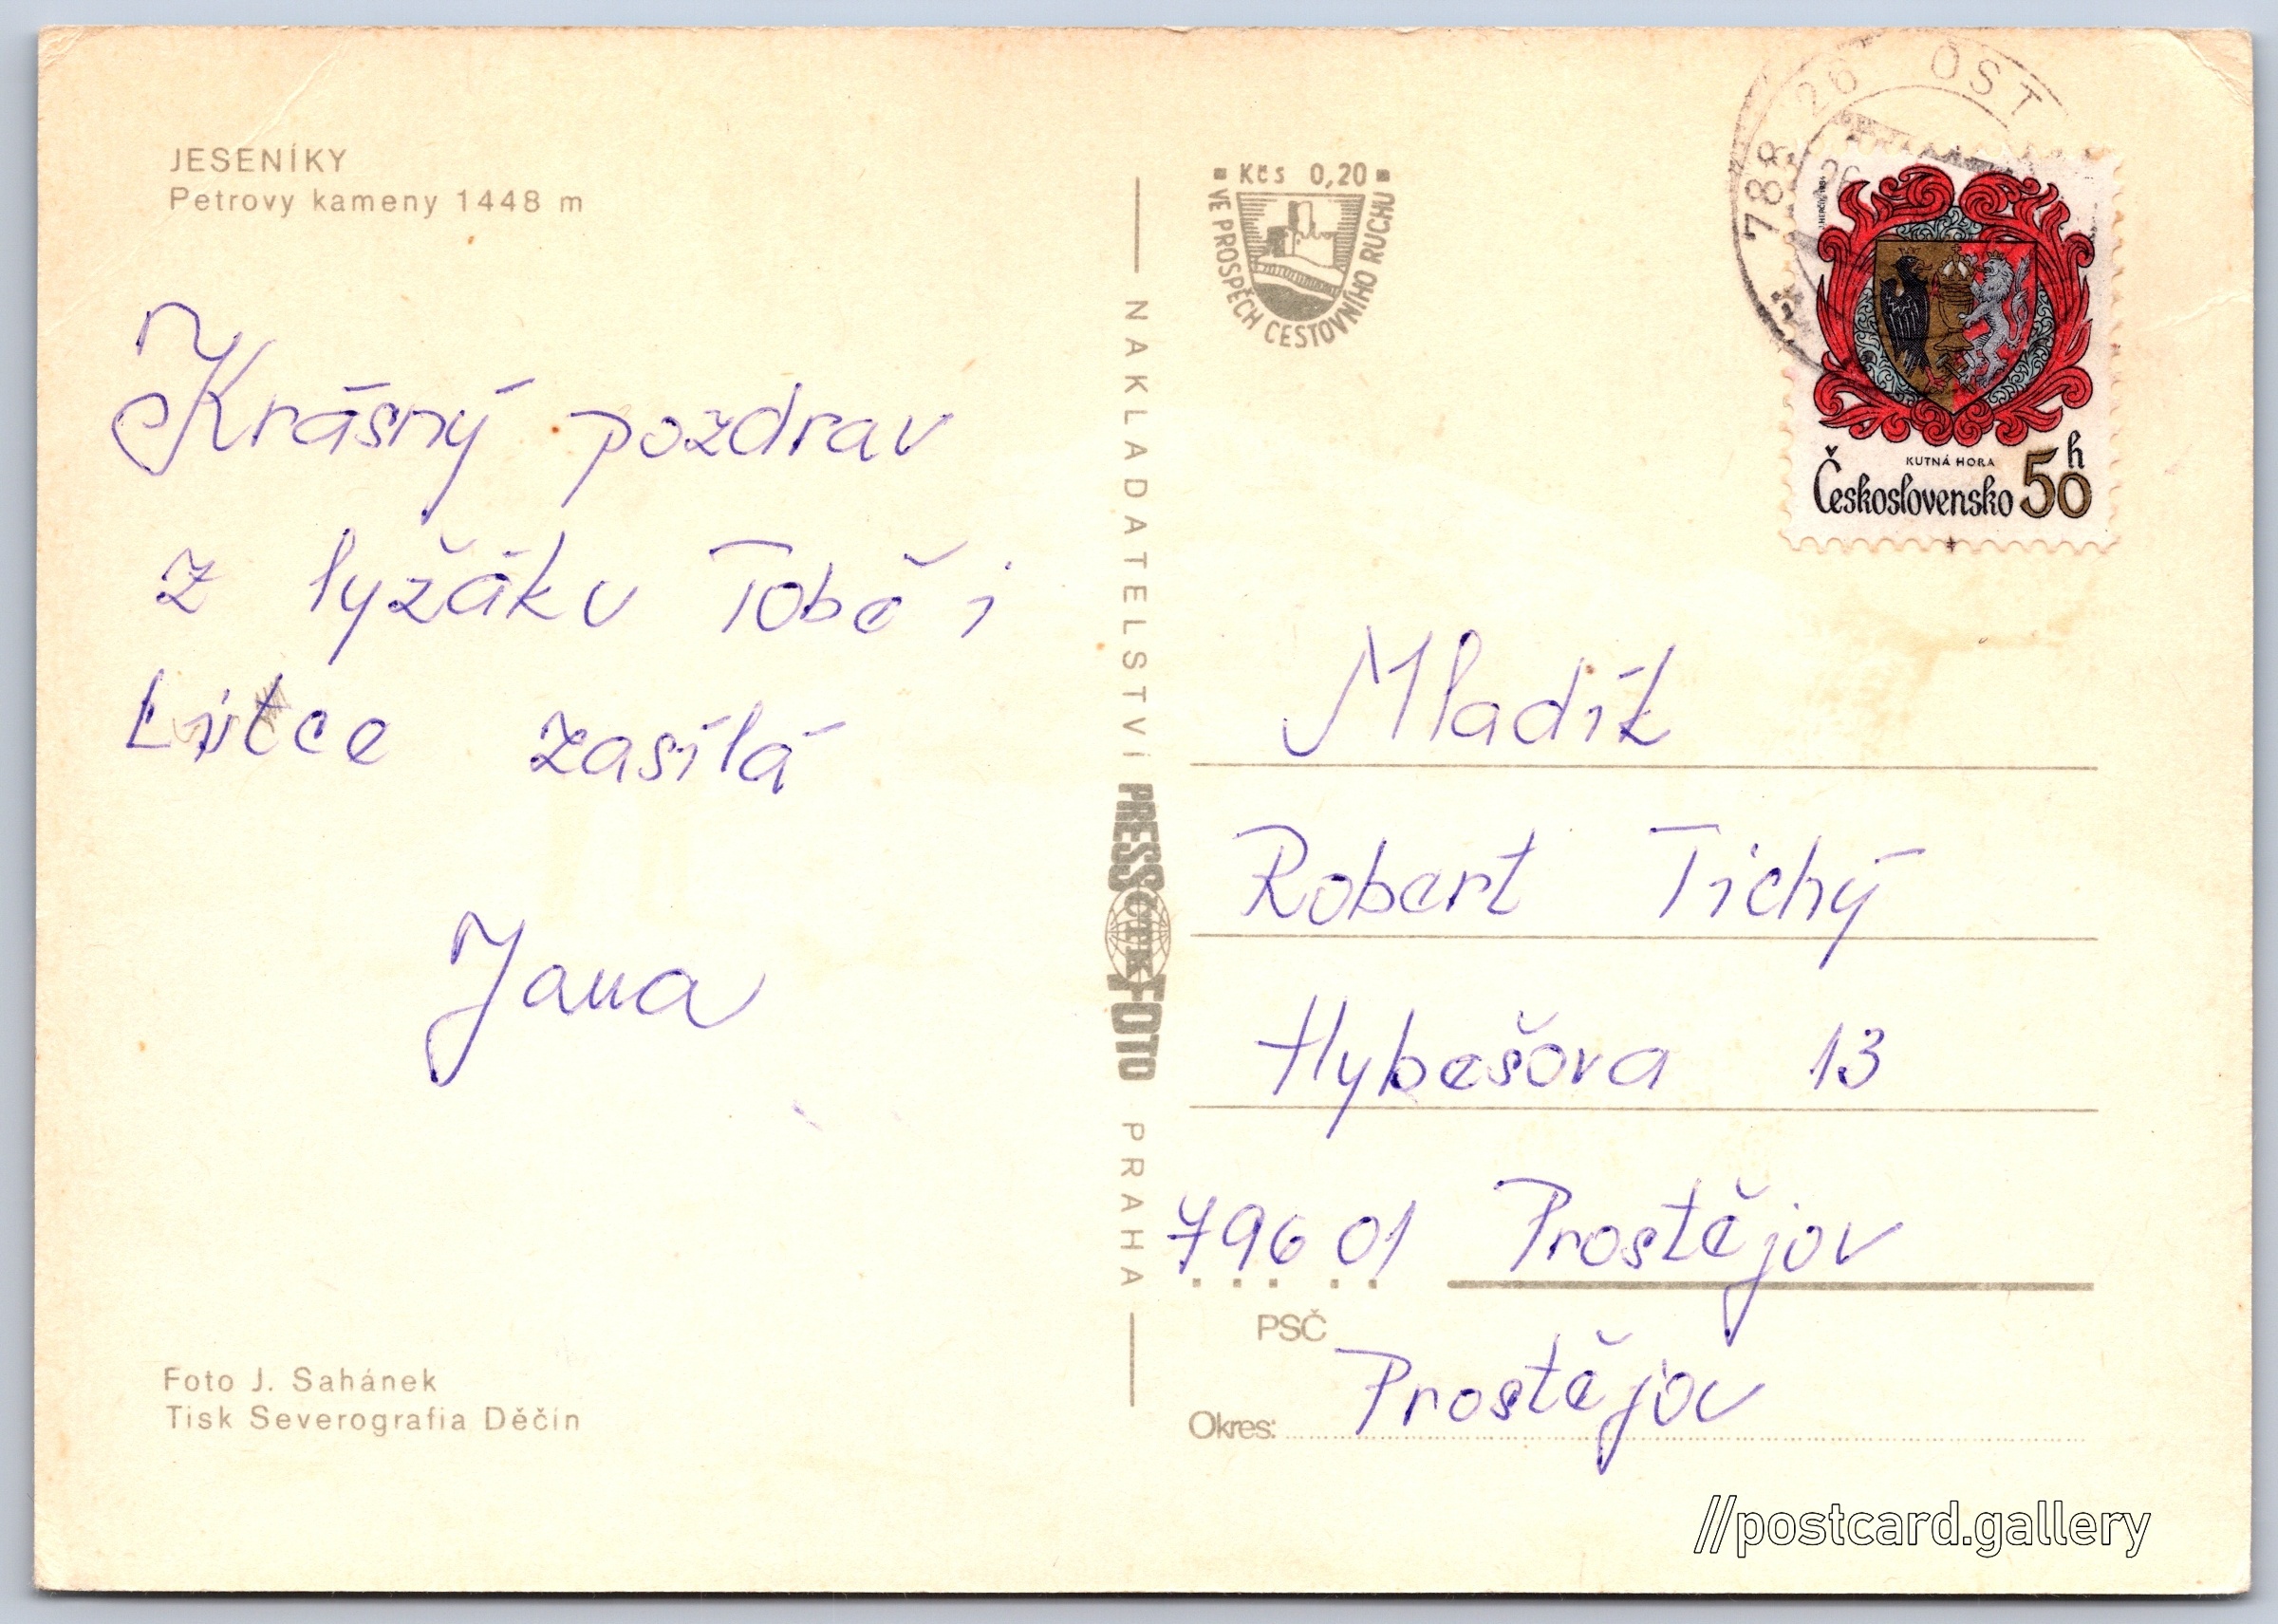 JESENÍKY
Petrovy kameny 1448 m
Krásný pozdrav
z lyžáku Tobě i
zasílá
Jana
Foto J. Sahánek
Tisk Severografia Děčín
NAKLADATELSTVÍ PRESSFOTO PRAHA
ČTK
Kčs 0,20
VE PROSPĚCH CESTOVNÍHO RUCHU
788 26 OST
26
KUTNÁ HORA
Československo 50 h
Mladík
Robert Tichý
Hybešova 13
796 01 Prostějov
PSČ
Okres: Prostějov
//postcard.gallery